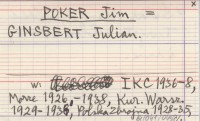 POKER Jim =
GINSBERT Julian.
w: IKC 1936-8,
Morze 1926,-1938, Kur. Warsz.
1929-1936, Polska Zbrojna 1928-35,